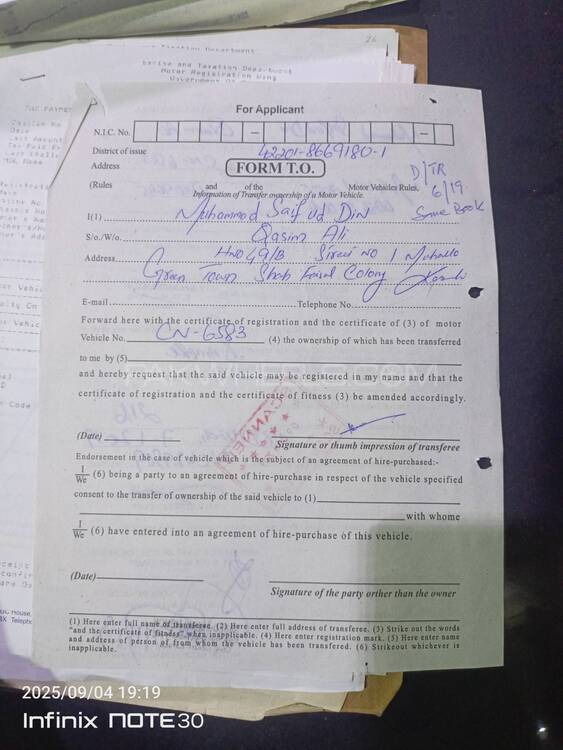 26
Taxation Department
Excise and Taxation Department
Motor Registration Wing
For Applicant
N.I.C. No. – –
District of issue 42201-8669180-1
Address FORM T.O. D/TR
(Rules and of the Motor Vehicles Rules, 6/19
Information of Transfer ownership of a Motor Vehicle. Same Book
I(1) Muhammad Saif Ud Din
S/o./W/o. Qasim Ali
Address HNO 49/B Street NO 1 Mohalla
Green Town Shah Faisal Colony
E-mail Telephone No.
Forward here with the certificate of registration and the certificate of (3) of motor
Vehicle No. CN-6583 (4) the ownership of which has been transferred
to me by (5)
and hereby request that the said vehicle may be registered in my name and that the
certificate of registration and the certificate of fitness (3) be amended accordingly.
SCANNED
(Date) Signature or thumb impression of transferee
Endorsement in the case of vehicle which is the subject of an agreement of hire-purchased:-
I
We (6) being a party to an agreement of hire-purchase in respect of the vehicle specified
consent to the transfer of ownership of the said vehicle to (1)
with whome
I
We (6) have entered into an agreement of hire-purchase of this vehicle.
(Date) Signature of the party orther than the owner
(1) Here enter full name of transferee. (2) Here enter full address of transferee. (3) Strike out the words
"and the certificate of fitness" when inapplicable. (4) Here enter registration mark. (5) Here enter name
and address of person of from whom the vehicle has been transferred. (6) Strikeout whichever is
inapplicable.
2025/09/04 19:19
Infinix NOTE30